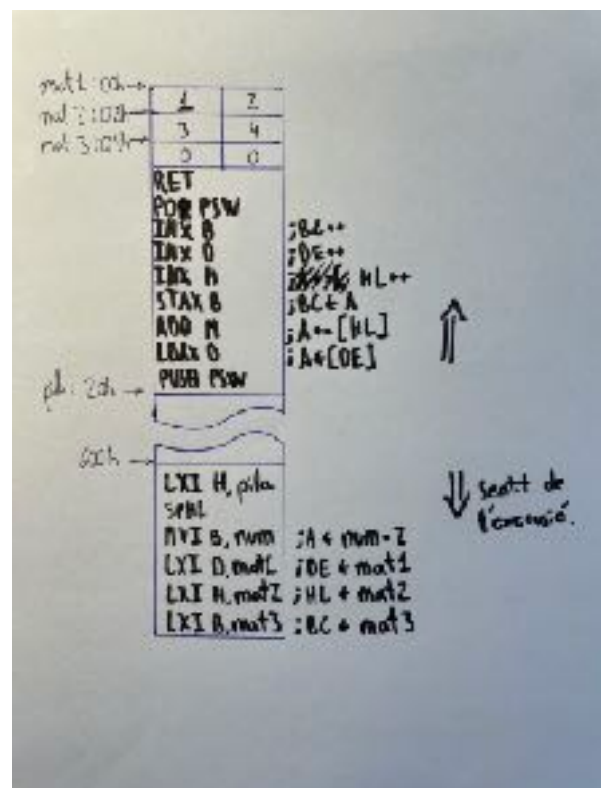 mat1:00h→
1 2
mat2:02h→
3 4
mat3:04h→
0 0
RET
POP PSW
INX B ;BC++
INX D ;DE++
INX H ; HL++
STAX B ;BC←A
ADD M ;A←[HL]
LDAX D ;A←[DE]
PUSH PSW
20h →
600h →
LXI H, pila
SPHL
MVI B, num ;A ← num-2
LXI D, mat1 ;DE ← mat1
LXI H, mat2 ;HL ← mat2
LXI B, mat3 ;BC ← mat3
Sentit de
l'execució.